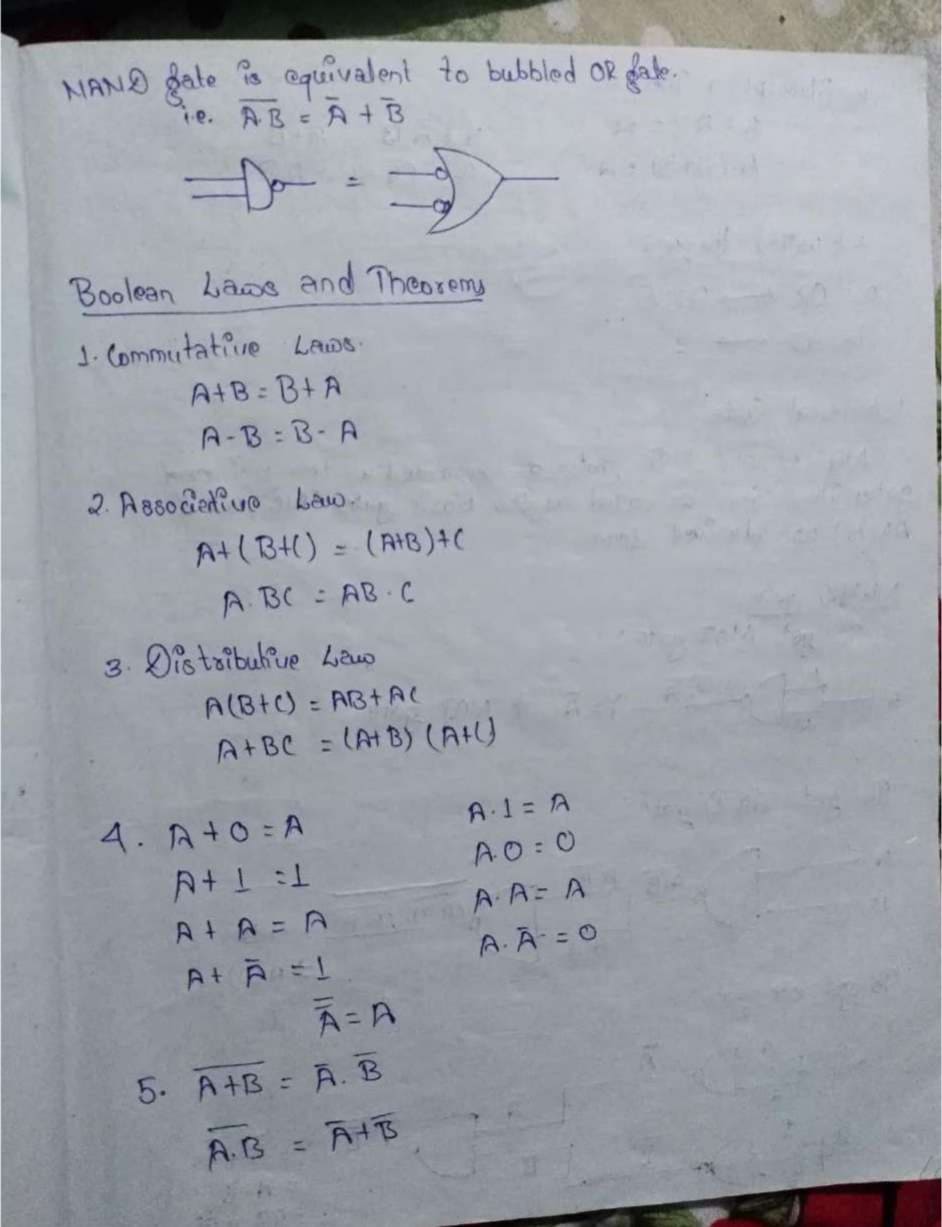 NAND gate is equivalent to bubbled OR gate.
i.e. \overline{A.B} = Ā + B̄
=
Boolean Laws and Theorems
1. Commutative Laws.
A+B = B+A
A-B = B-A
2. Associative Law.
A+(B+C) = (A+B)+C
A.BC = AB.C
3. Distributive Law
A(B+C) = AB+AC
A+BC = (A+B) (A+C)
4. A+0 = A A.1 = A
A+1 = 1 A.0 = 0
A+A = A A.A = A
A+Ā = 1 A.Ā = 0
\overline{\overline{A}} = A
5. \overline{A+B} = Ā.B̄
\overline{A.B} = Ā+B̄